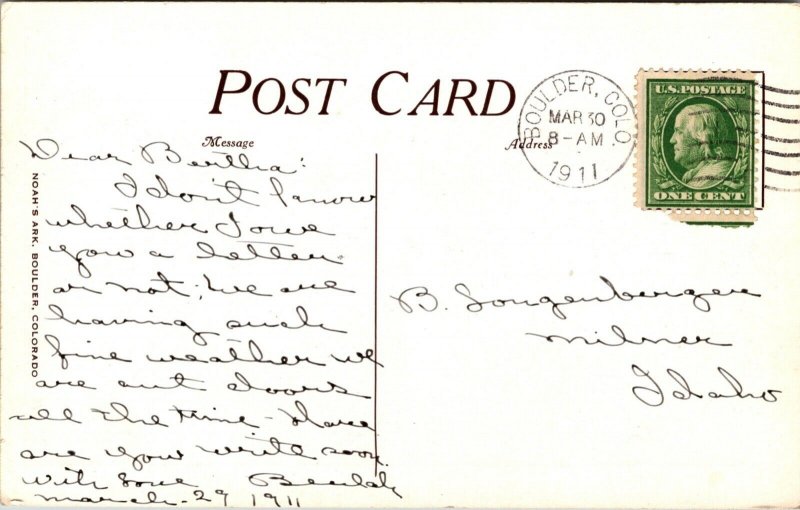 POST CARD
Message
Address
BOULDER, COLO.
MAR 30
8-AM
1911
U.S. POSTAGE
ONE CENT
NOAH'S ARK, BOULDER, COLORADO
Dear Bertha:
I don't know
whether I owe
you a letter
or not; We are
having such
fine weather we
are out doors
all the time - How
are you write soon.
With love Beulah
March - 29 1911
B. Longenberger
Milner
Idaho